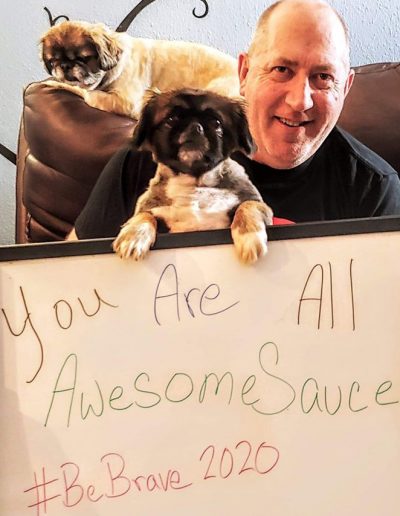 You Are All
AwesomeSauce
#BeBrave2020